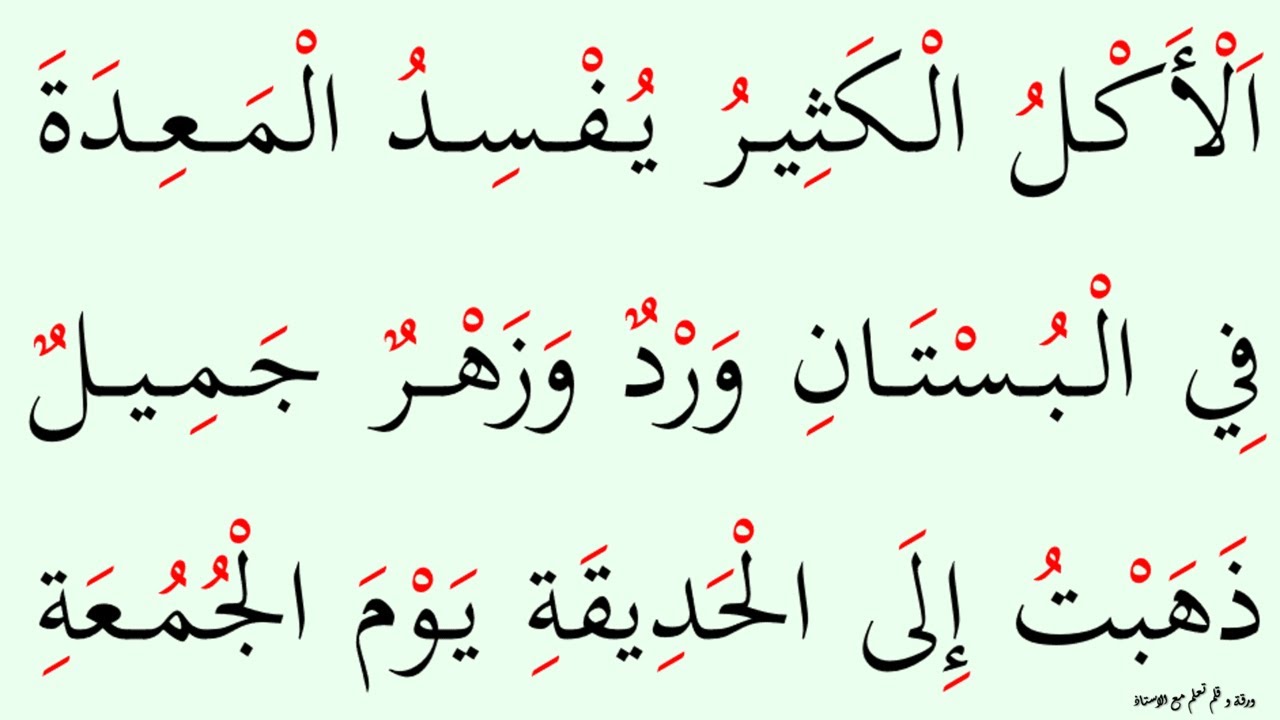 اَلْأَكْلُ الْكَثِيرُ يُفْسِدُ الْمَعِدَةَ
فِي الْبُسْتَانِ وَرْدٌ وَزَهْرٌ جَمِيلٌ
ذَهَبْتُ إِلَى الْحَدِيقَةِ يَوْمَ الْجُمُعَةِ
ورقة و قلم تعلم مع الاستاذ